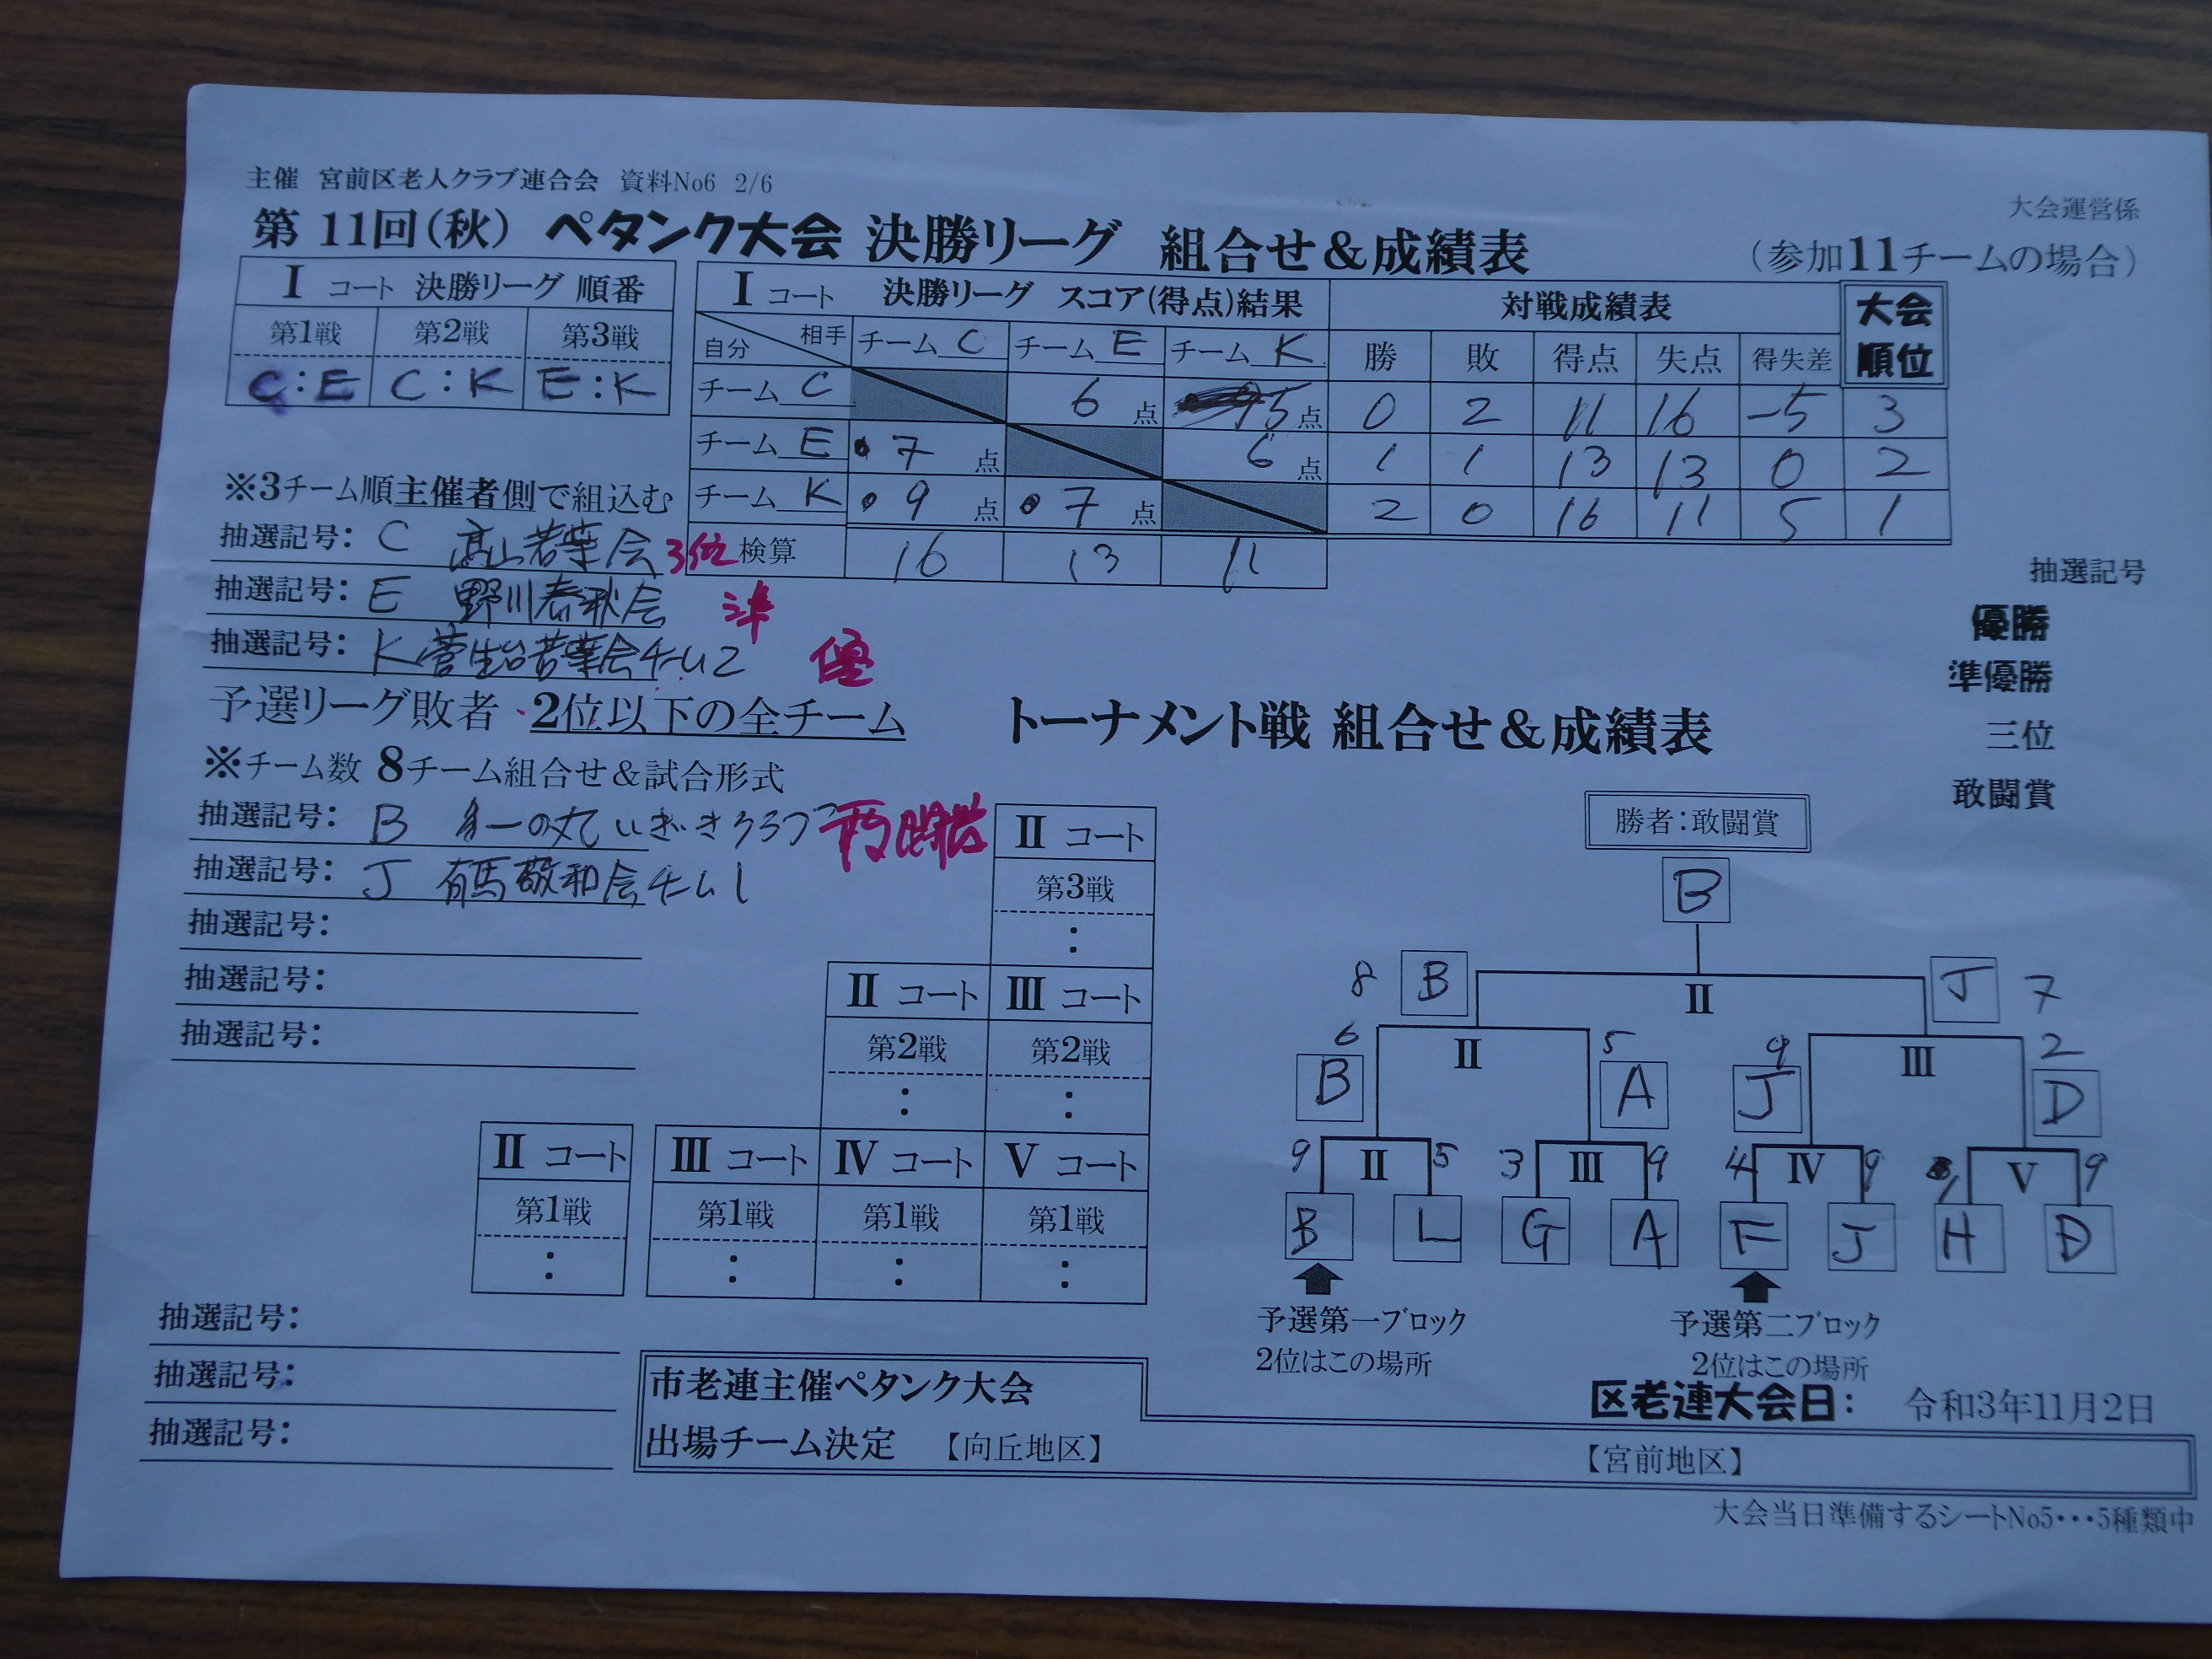 主催 宮前区老人クラブ連合会 資料No6 2/6
大会運営係
第11回(秋) ペタンク大会 決勝リーグ 組合せ&成績表 (参加11チームの場合)
I コート 決勝リーグ 順番
第1戦 第2戦 第3戦
C:E C:K E:K
I コート 決勝リーグ スコア(得点)結果 対戦成績表 大会順位
自分 相手 チーム C チーム E チーム K 勝 敗 得点 失点 得失差
チーム C 6点 5点 0 2 11 16 -5 3
チーム E 7点 6点 1 1 13 13 0 2
チーム K 9点 7点 2 0 16 11 5 1
検算 16 13 11
※3チーム順主催者側で組込む
抽選記号: C 高山若葉会 3位
抽選記号: E 野川春秋会 準
抽選記号: K 菅生台若葉会チーム2 優
抽選記号
優勝
準優勝
三位
敢闘賞
予選リーグ敗者 2位以下の全チーム トーナメント戦 組合せ&成績表
※チーム数 8チーム組合せ&試合形式
抽選記号: B いきいきクラブ
抽選記号: J 有馬敬和会チーム1
抽選記号:
抽選記号:
抽選記号:
II コート
第3戦
:
II コート III コート
第2戦 第2戦
: :
II コート III コート IV コート V コート
第1戦 第1戦 第1戦 第1戦
: : : :
勝者:敢闘賞
B
8 B II J 7
6 B II 5 A 9 J III 2 D
9 II 5 3 III 9 4 IV 9 1 V 9
B L G A F J H D
予選第一ブロック
2位はこの場所
予選第二ブロック
2位はこの場所
抽選記号:
抽選記号:
抽選記号:
区老連大会日: 令和3年11月2日
市老連主催ペタンク大会
出場チーム決定 【向丘地区】 【宮前地区】
大会当日準備するシートNo5・・・5種類中